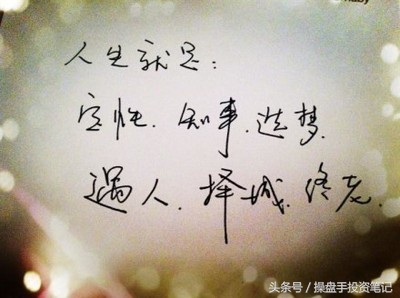 人生就是：
定性、知事、造梦、
遇人、择城、终老.
头条号/操盘手投资笔记